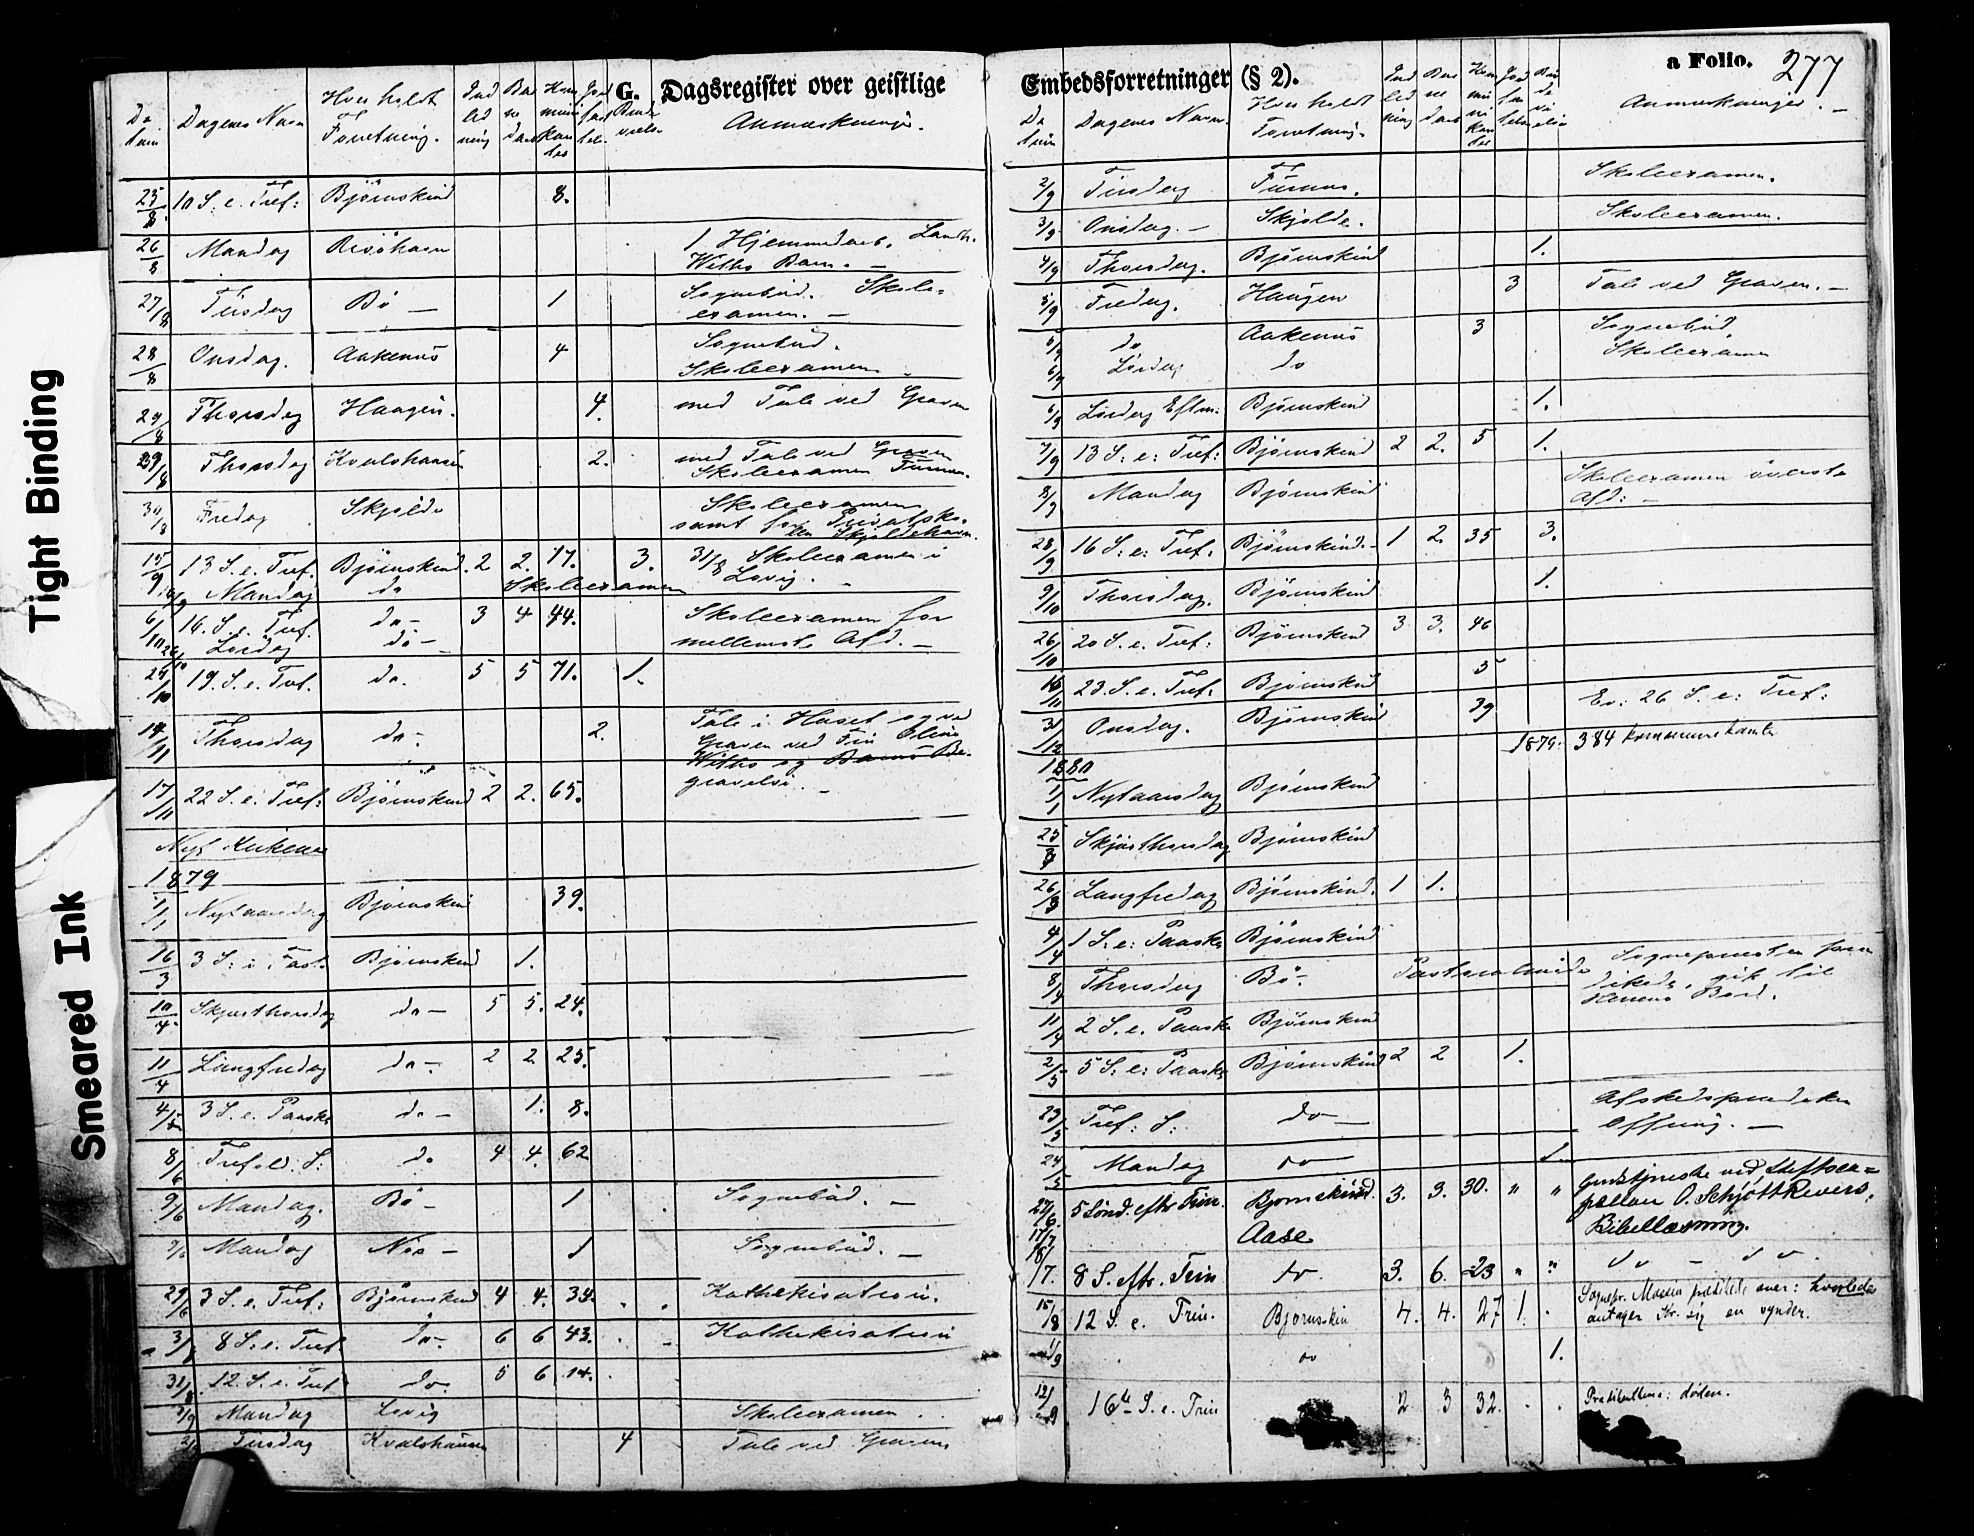 G. Dagsregister over geistlige
Datum Dagenes Navn Hvor holdt Forretning. Indledning Børnedaab Kommunikantes Jordfæstelse Anmærkninger.
25/8 10 S. e. Tref: Bjørnskind 8.
26/8 Mandag Risöhavn 1 Hjemmedaab. Landh.
Withs Barn. —
27/8 Tirsdag Bö — 1 Sognebud. Skole-
examen. —
28/8 Onsdag. Aakenæs 4 Sognebud.
Skoleexamen
29/8 Thorsdag Haugen. 4. med Tale ved Graven
29/8 Thorsdag Kvalshausen 2. med Tale ved Graven
Skoleexamen
30/8 Fredag Skjolde Skoleexamen
samt for Privatsko-
len Skjoldehavn.
15/9 13 S. e. Tref. Bjørnskind. 2 2. 17. 3. 31/8 Skoleexamen i
Lovig. —
Mandag do Skoleexamen
6/10 16. S. e. Tref. do — 3 4 44. Skoleexamen for
Lördag do — mellemste Afd. —
27/10 19. S. e. Tref. do. 5 5 71. 1.
14/11 Thorsdag do — 2. Tale i Huset og ved
Graven ved Fru
Withs og Barns Be-
gravelse. —
17/11 22 S. e. Tref: Bjørnskind 2 2. 65.
Nyt Kirkeaar
1879
1/1 Nytaarsdag Bjørnskind 39.
16/3 3 S: i Fast. Bjørnskind 1.
10/4 Skjærthorsdag do — 5 5. 24.
11/4 Langfredag do — 2 2 25.
4/5 3 S. e. Paaske do — 1. 8.
8/6 Trefold. S: do 4 4. 62
9/6 Mandag. Bö — 1 Sognebud. —
9/6 Mandag — 1 Sognebud. —
29/6 3 S. e. Tref: Bjørnskind 4 4. 34. Kathekisation.
3/8 8 S. e. Tref. do — 6 6 43. Kathekisation
31/8 12. S. e. Tref do. 5 6 14.
1/9 Mandag Lovig Skoleexamen.
2/9 Tirsdag Kvalshausen 4 Tale ved Graven
Embedsforretninger (§ 2). a Folio. 277
Datum Dagenes Navn. Hvor holdt Forretning. Indledning Kommunikantes Anmærkninger. —
2/9 Tirsdag Skoleexamen.
3/9 Onsdag. — Skjolde. Skoleexamen.
4/9 Thorsdag. Bjørnskind 1.
5/9 Fredag. Haugen 3 Tale ved Graven. —
5/9 do Aakenæs 3 Sognebud
6/9 Lördag do Skoleexamen
6/9 Lördag Eftm: Bjørnskind 1.
7/9 13 S: e: Tref: Bjørnskind 2 2. 5 1.
8/9 Mandag Bjørnskind Skoleexamen överste
Afd: —
28/9 16 S: e: Tref. Bjørnskind. — 1 2. 35 3.
9/10 Thorsdag. Bjørnskind 1.
26/10 20 S. e. Tref: Bjørnskind 3 3. 46
16/11 23. S. e. Tref: Bjørnskind 5
31/12 Onsdag. Bjørnskind 39 Ev: 26 S. e: Tref:
1879: 384 kommunikanter
1880
1/1 Nytaarsdag Bjørnskind
25/3 Skjærthorsdag Bjørnskind
26/3 Langfredag Bjørnskind. 1 1.
4/4 1 S: e: Paaske Bjørnskind
8/4 Thorsdag Bö — Pastoralmöde Sognepresten præ-
dikede, gik til
Herrens Bord.
11/4 2 S. e. Paaske Bjørnskind
2/5 5 S: e: Paaske Bjørnskind 2 2 1.
23/5 Tref: S: do — Afskedspræediken
Offring. —
24/5 Mandag do — 1.
27/6 5 Sönd. eftr Trin. Bjørnskind. 3. 3. 30. " " Gudstjeneste ved Stiftsca-
pellan O. Schjött Revers.
11/7 Aase Bibellæsning.
18/7. 8 S. eftr. Trin do. 3. 6. 23 " " do — do.
15/8 12 S. e. Trin. Bjørnskin 4. 4. 27 1. . Sognepr. prædikede over: hvorledes
antager Kr. sig en synder.
1/9 do 1.
12/9 16de S. e. Trin 2 3 32. . . døden.
Tight Binding
Smeared Ink